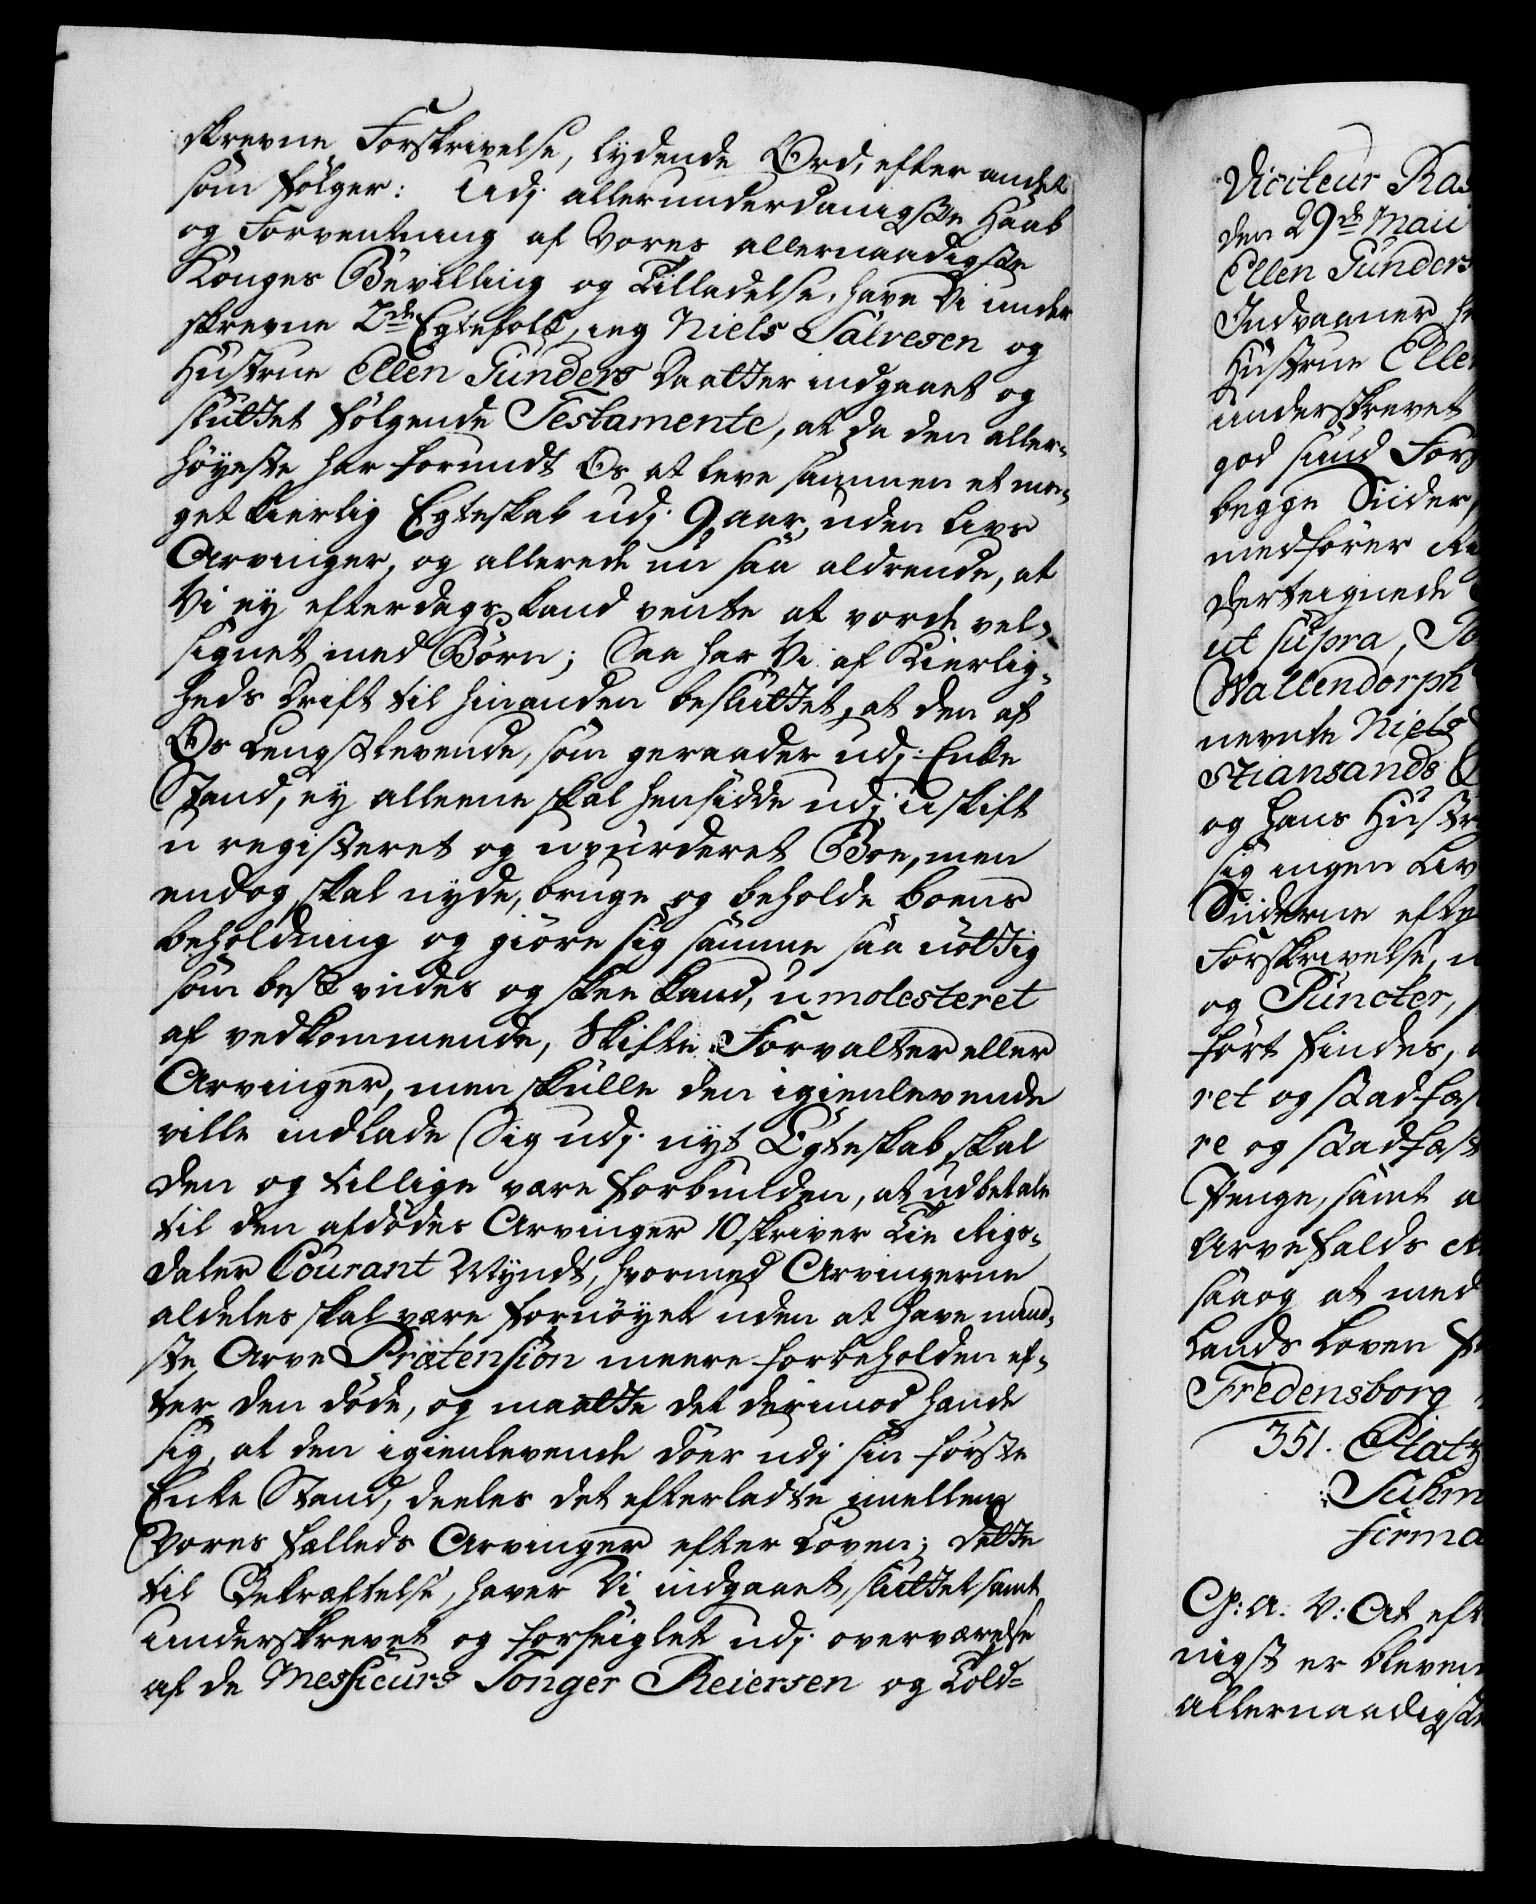 skrevne Forskrivelse, lydende Ord, efter andet
som følger: Udj allerunderdanigste Haab
og Forventning af Vores allernaadigste
Konges Bevilling og Tilladelse, have Vi under
skrevne 2de Egtefolk, ieg Niels Salvesen og
Hustrue Ellen Gunders Daatter indgaaet og
sluttet følgende Testamente, at da den aller-
høyeste har forundt Os at leve sammen et me-
get kierlig Egteskab udj 9 aar, uden Livs
Arvinger, og allerede nu saa aldrende, at
Vi ey efterdags kand vente at vorde vel-
signet med Børn; Saa har Vi af Kierlig-
heds Drift til hinanden besluttet, at den af
Os Lengstlevende, som geraader udj Enke
Stand, ey alleene skal hensidde udj uskift
u registeret og uvurderet Boe, men
endog skal nyde, bruge og beholde Boens
beholdning og giøre sig samme saa nøttig
som best vides og skee kand, u molesteret
af vedkommende, Skifte Forvalter eller
Arvinger, men skulle den igienlevende
ville indlade Sig udj nyt Egteskab, skal
den og tillige være forbunden, at udbetale
til den afdødes Arvinger 10 skriver Tie Rigs-
daler Courant Myndt, hvormed Arvingerne
aldeles skal være fornøyet uden at have mind-
ste Arve Prætension meere forbeholden ef-
ter den døde, og maatte det derimod hænde
sig, at den igienlevende døer udj sin første
Enke Stand, deeles det efterladte imellem
Vores fælleds Arvinger efter Loven; Dette
til Bekræftelse, haver Vi indgaaet, sluttet samt
underskrevet og forseiglet udj overværelse
af de Messieurs Tonger Reiersen og Told-
Visiteur Ras
den 29de Maii
Ellen Gunders
Indvaaner
Hustrue Ellen
underskrevet
god sund For
begge Siider,
medfører
Derteignede
ut supra,
Wallendorph
nevnte Niels
stiansands
og hans Hustr
sig ingen Liv
Siiderne efter
Forskrivelse,
og Puncter,
ført findes,
ret og stadfæs
re og stadfæst
Penge, samt a
Arvefalds
saaog at med
Lands Loven
Fredensborg
351. Platz
Suhm
firma
G: A: V: At eft
nigst er bleven
allernaadigste